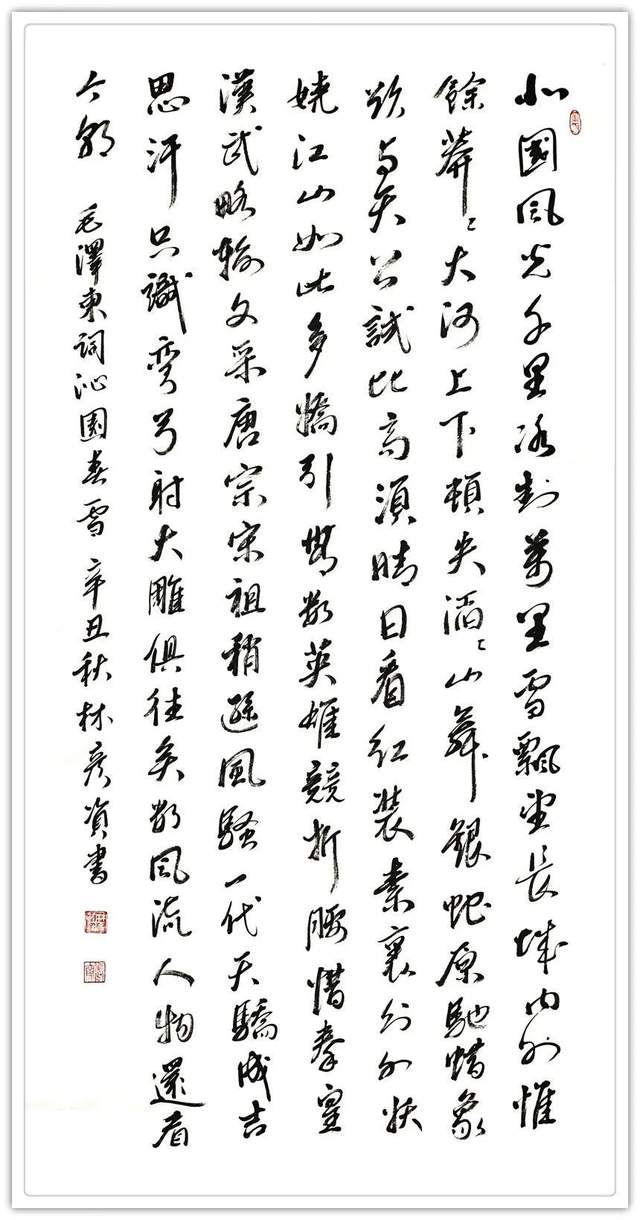 北國風光千里冰封萬里雪飄望長城内外惟
餘莽〻大河上下頓失滔〻山舞銀蛇原馳蜡象
欲与天公試比高須晴日看紅裝素裹分外妖
嬈江山如此多嬌引無數英雄競折腰惜秦皇
漢武略輸文采唐宗宋祖稍遜風騷一代天驕成吉
思汗只識彎弓射大雕俱往矣數風流人物還看
今朝 毛澤東詞沁園春雪 辛丑秋林彦書